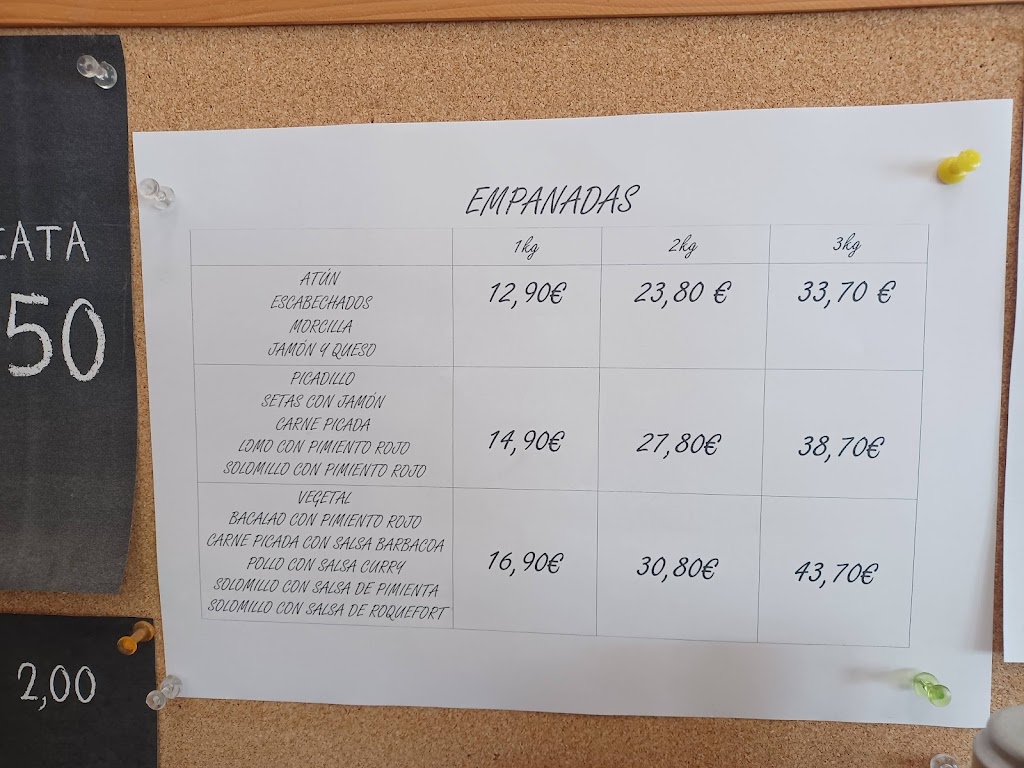 EMPANADAS
1kg 2kg 3kg
ATÚN
ESCABECHADOS
MORCILLA
JAMÓN Y QUESO
12,90€ 23,80 € 33,70 €
PICADILLO
SETAS CON JAMÓN
CARNE PICADA
LOMO CON PIMIENTO ROJO
SOLOMILLO CON PIMIENTO ROJO
14,90€ 27,80€ 38,70€
VEGETAL
BACALAO CON PIMIENTO ROJO
CARNE PICADA CON SALSA BARBACOA
POLLO CON SALSA CURRY
SOLOMILLO CON SALSA DE PIMIENTA
SOLOMILLO CON SALSA DE ROQUEFORT
16,90€ 30,80€ 43,70€
50
2,00